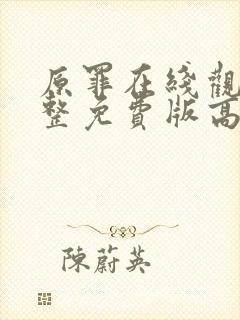 原罪在綫觀
整免費版高
陳蔚英